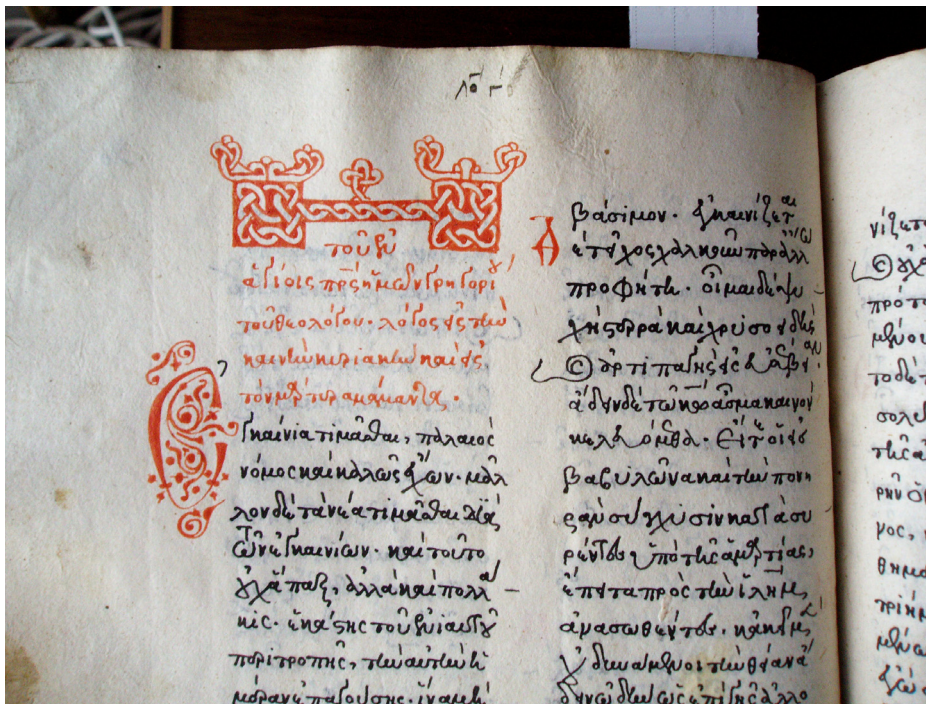 λο γο
τοῦ ἐν
ἁγίοις πρς ἡμῶν γρηγορί
τοῦ θεολόγου· λόγος εἰς τὴν
καινὴν κυριακὴν καὶ εἰς
τὸν μάρτυρα μάμαντα.
Ἐγκαίνια τιμᾶσθαι, παλαιὸς
νόμος καὶ καλῶς ἔχων· μᾶλ
λον δὲ τὰ νέα τιμᾶσθαι διὰ
τῶν ἐγκαινίων· καὶ τοῦτο
οὐχ ἅπαξ, ἀλλὰ καὶ πολλά
κις· ἑκάστης τοῦ ἐνιαυτοῦ
περιτροπῆς, τὴν αὐτὴν ἡ
μέραν ἐπαγούσης· ἵνα μὴ
βάσιμον· ἐγκαινίζεται
τεῖχος χαλκοῦν παρ' ἄλλω
προφήτη· οἶμαι δὲ ψυ
χῆς στερρὰ καὶ χρυσοειδὴς
ἄρτι παγῆς εἰς εὐσέβειαν·
ἄδειν δὲ τῶ κω ἆσμα καινὸν
κελευόμεθα· Εἴτε οἱ εἰς
βαβυλῶνα καὶ τὴν πονη
ρὰν σύγχυσιν κατασυ
ρέντες ὑπὸ τῆς ἁμαρτίας,
ἔπειτα πρὸς τὴν ἱλημ,
ἀνασωθέντες· κἀκεῖ μὲν
οὐ δυνάμενοι τὴν θείαν ἄ
δειν ὠδὴν ὡς ἐπὶ γῆς ἀλλο